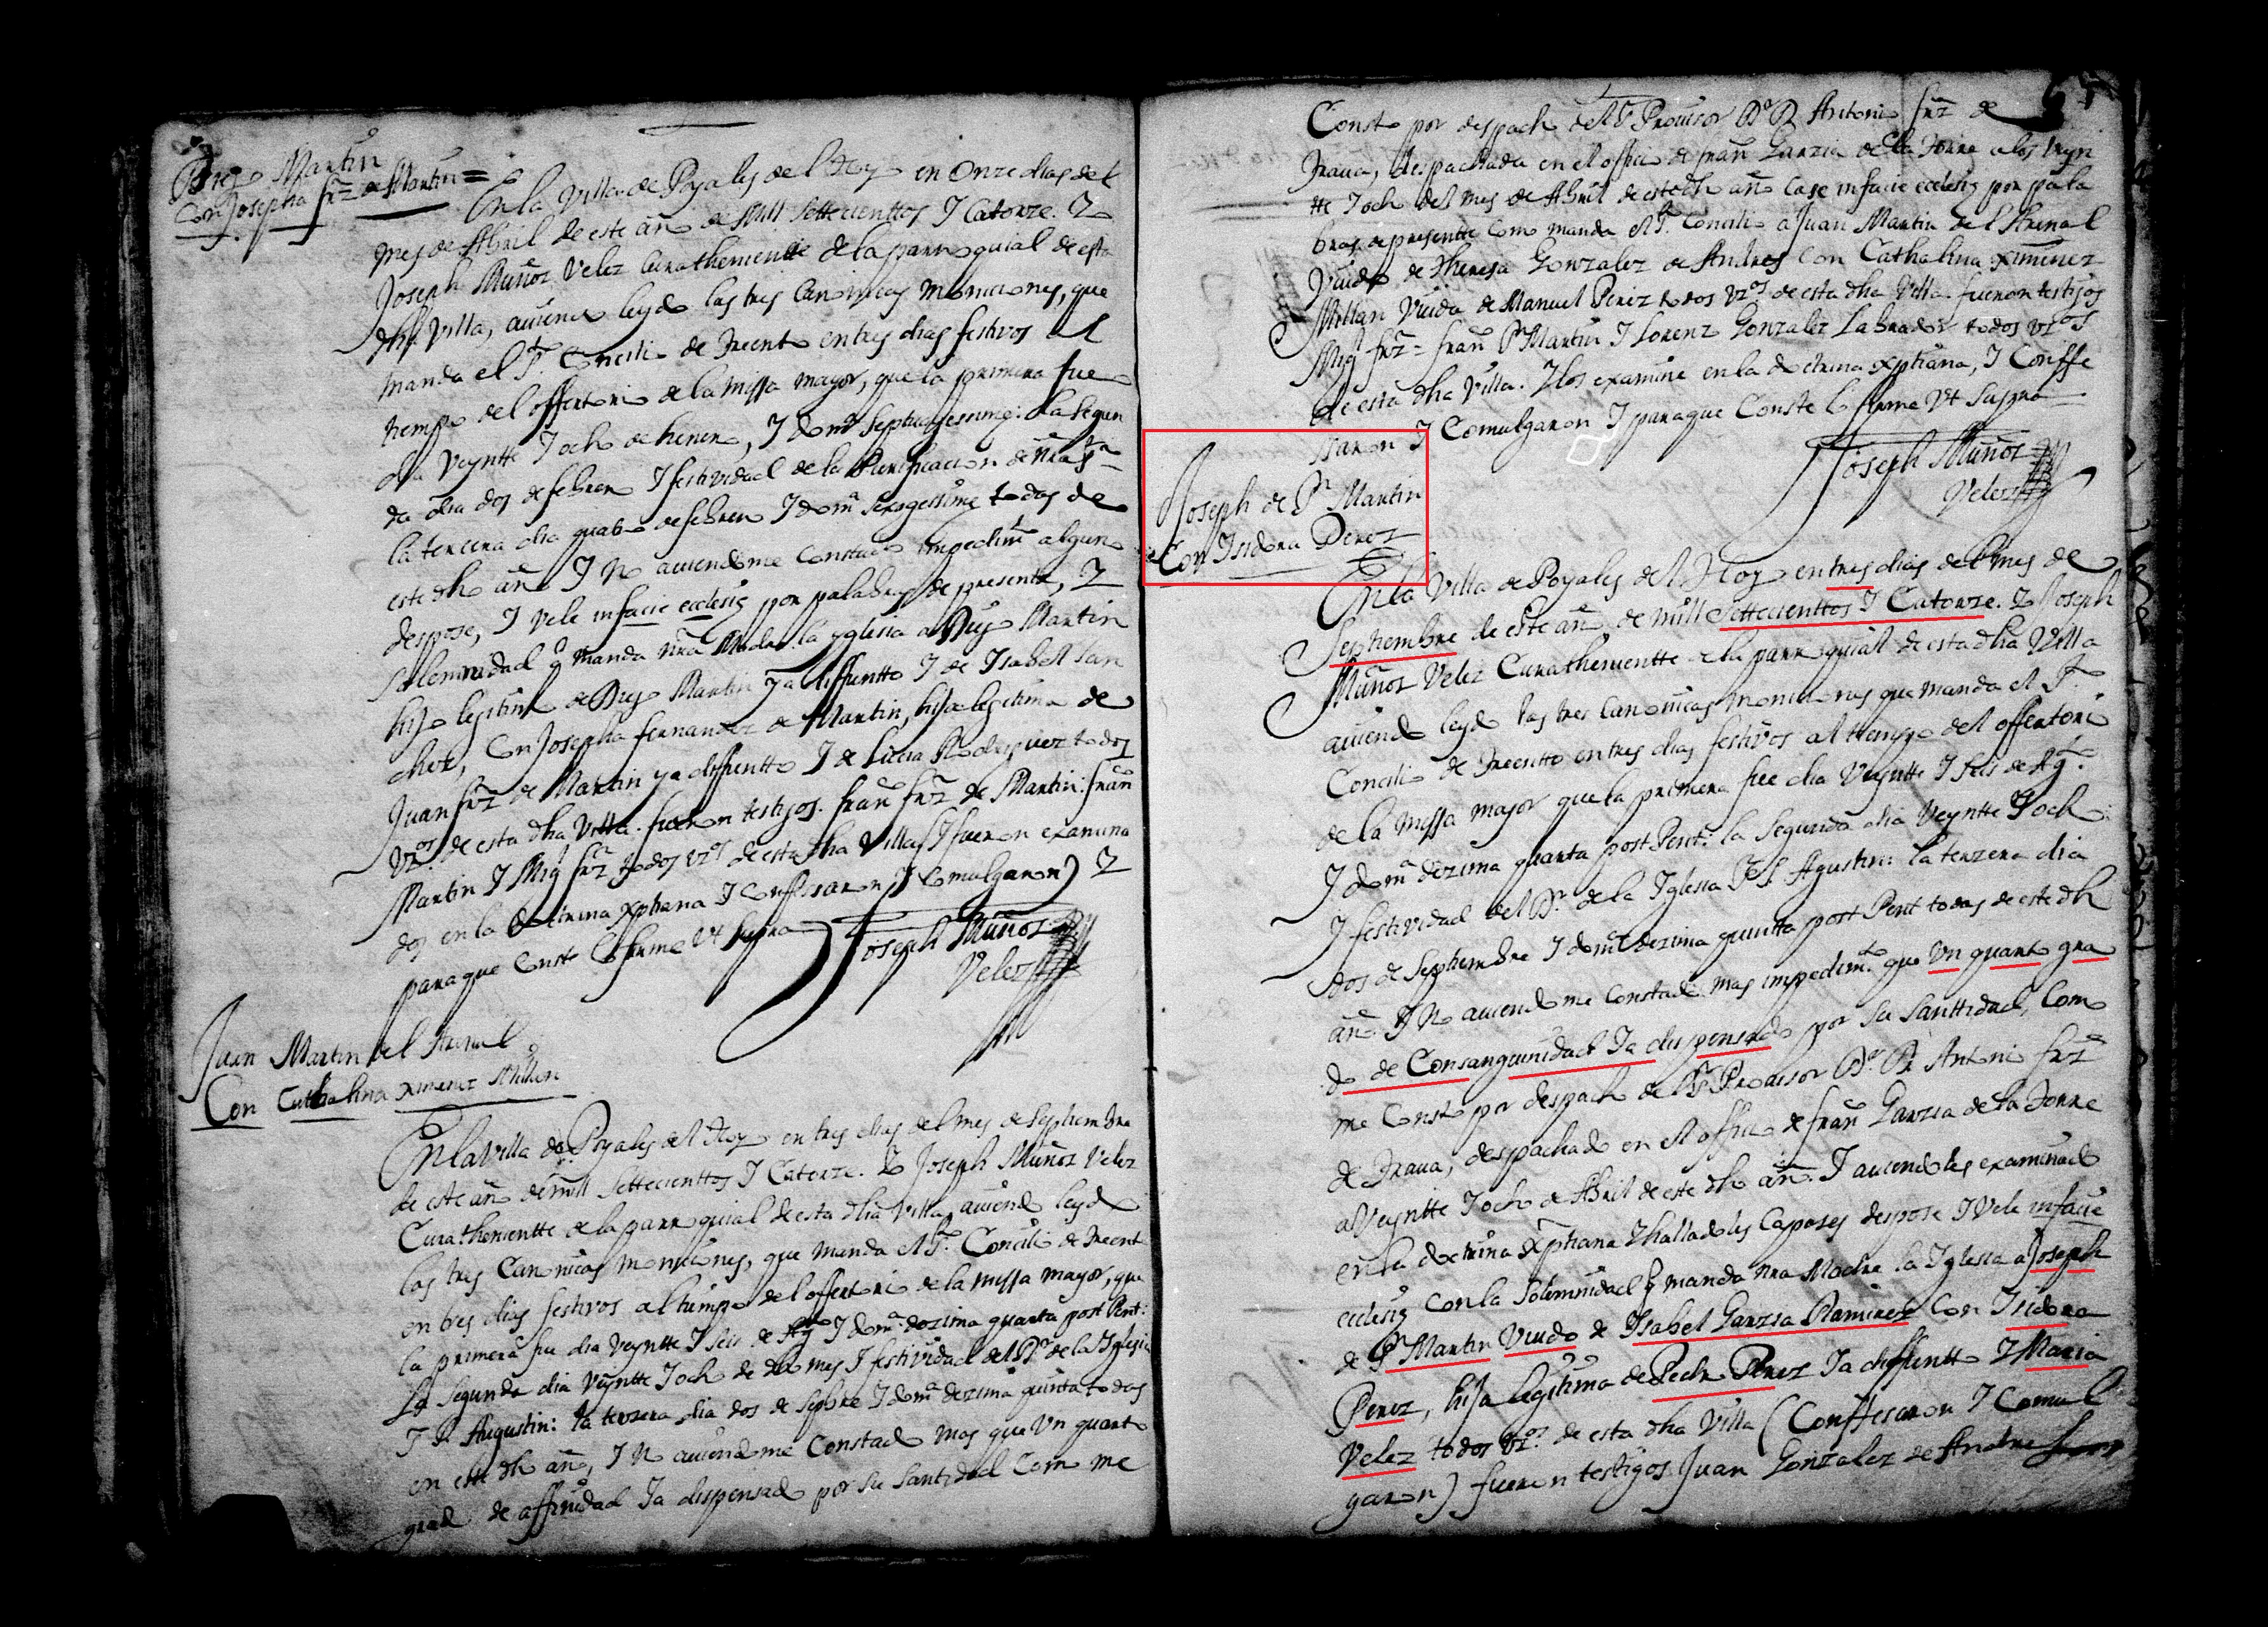 Diego Martin
Con Josepha frz de Martin =
En la Villa de Poyales del Hoyo en Onze dias del
mes de Abril de este año de Mill Settecienttos I Catorze. Io
Joseph Muñoz Velez Curatheniente de la parroquial de esta
dha Villa, auiendo leydo las tres Canonicas moniciones, que
manda el Sto. Concilio de Trento en tres dias festivos al
tiempo del offertorio de la missa mayor, que la primera fue
dia Veyntte I ocho de henero, I domca Septuagessima: la Segun
da dia dos de febrero I festividad de la Purificacion de nra Sra
la tercera dia quatro de febrero I domca Sexagessima todas de
este dho año I No auiendome Constado impedimto alguno
despose, I Vele infacie ecclesię por palabras de presente, I
solemnidad q manda nra Madre la yglesia a Diego Martin
hijo legitimo de Diego Martin ya diffuntto I de Isabell San
chez, Con Josepha fernandez de Martin, hija legitima de
Juan frz de Martin ya diffuntto I de Lucia Rodriguez todos
Vzos de esta dha Villa. fueron testigos. franco frz de Martin: franco
Martin I Migl frz todos vzos de esta dha Villa (I fueron examina
dos en la doctrina xptiana I Conffessaron I Comulgaron) I
para que Conste lo firme Vt Supra
Joseph Muñoz
Velez
Juan Martin del Arenal
Con Cathalina Ximenez Millan
En la Villa de Poyales del Hoyo en tres dias del mes de Septiembre
de este año de mill Settecienttos I Catorze. Io Joseph Muñoz Velez
Curathenientte de la parroquial de esta dha Villa, auiendo leydo
las tres Canonicas moniciones, que manda el Sto. Concilio de Trento
en tres dias festivos al tiempo del offertorio de la missa mayor, que
la primera fue dia Veyntte I seis de Agto I domca dezima quarta post Pent:
La segunda dia Veyntte I ocho de dho mes I festividad del Dr de la Iglesia
I S. Augustin: la terzera dia dos de Sepbre I domca dezima quinta todas
en este dho año, I No auiendome Constado mas que Vn quarto
grado de affinidad Ia dispensado por Su Santidad Como me
Consto por despacho del Sr Prouisor Dor Dn Antonio frz de
Traua, despachada en el officio de franco Garzia de la Torre a los Veyn
tte I ocho del mes de Abril de este dho año Case infacie ecclesię por pala
bras de presentte Como manda el Sto. Concilio a Juan Martin del Arenal
Viudo de Theresa Gonzalez de Andres Con Cathalina Ximenez
Millan Viuda de Manuel Perez todos Vzos de esta dha Villa. fueron testigos
Migl frz = franco Pr Martin I Lorenzo Gonzalez Labrador todos vzos
de esta dha Villa. I los examine en la doctrina xptiana, I Conffe
ssaron I Comulgaron I para que Conste lo firme Vt Supra
Joseph Muñoz
Velez
Joseph de Pr Martin
Con Isidora Perez
En la Villa de Poyales del Hoyo en tres dias del mes de
Septiembre de este año de mill Settecienttos I Catorze. Io Joseph
Muñoz Velez Curathenientte de la parroquial de esta dha Villa
auiendo leydo las tres Canonicas moniciones que manda el Sto.
Concilio de Trentto en tres dias festivos al tiempo del offertorio
de la missa mayor que la primera fue dia Veyntte I seis de Agto
I domca dezima quarta post Pent: la Segunda dia Veyntte I ocho
I festividad del Dr. de la Iglesia S. Agustin: la terzera dia
dos de Septiembre I domca dezima quintta post Pent todas de este dho
año I No auiendome Constado mas impedimto que Vn quarto gra
do de Consanguinidad Ia dispensado por Su Santtidad, Como
me Consto por despacho del Sr Prouisor Dor Dn Antonio frz
de Traua, despachado en el officio de franco Garzia de la Torre
a Veyntte I ocho de Abril de este dho año. I auiendoles examinado
en la doctrina xptiana I halladoles Capases despose I Vele infacie
ecclesię con la Solemnidad q manda nra Madre la Iglesia a Joseph
de Pr Martin Viudo de Isabel Garzia Ramirez Con Isidora
Perez, hija legitima de Pedro Perez Ia diffuntto I Maria
Velez todos Vzos. de esta dha Villa (Conffesaron I Comul
garon) fueron testigos Juan Gonzalez de Andres